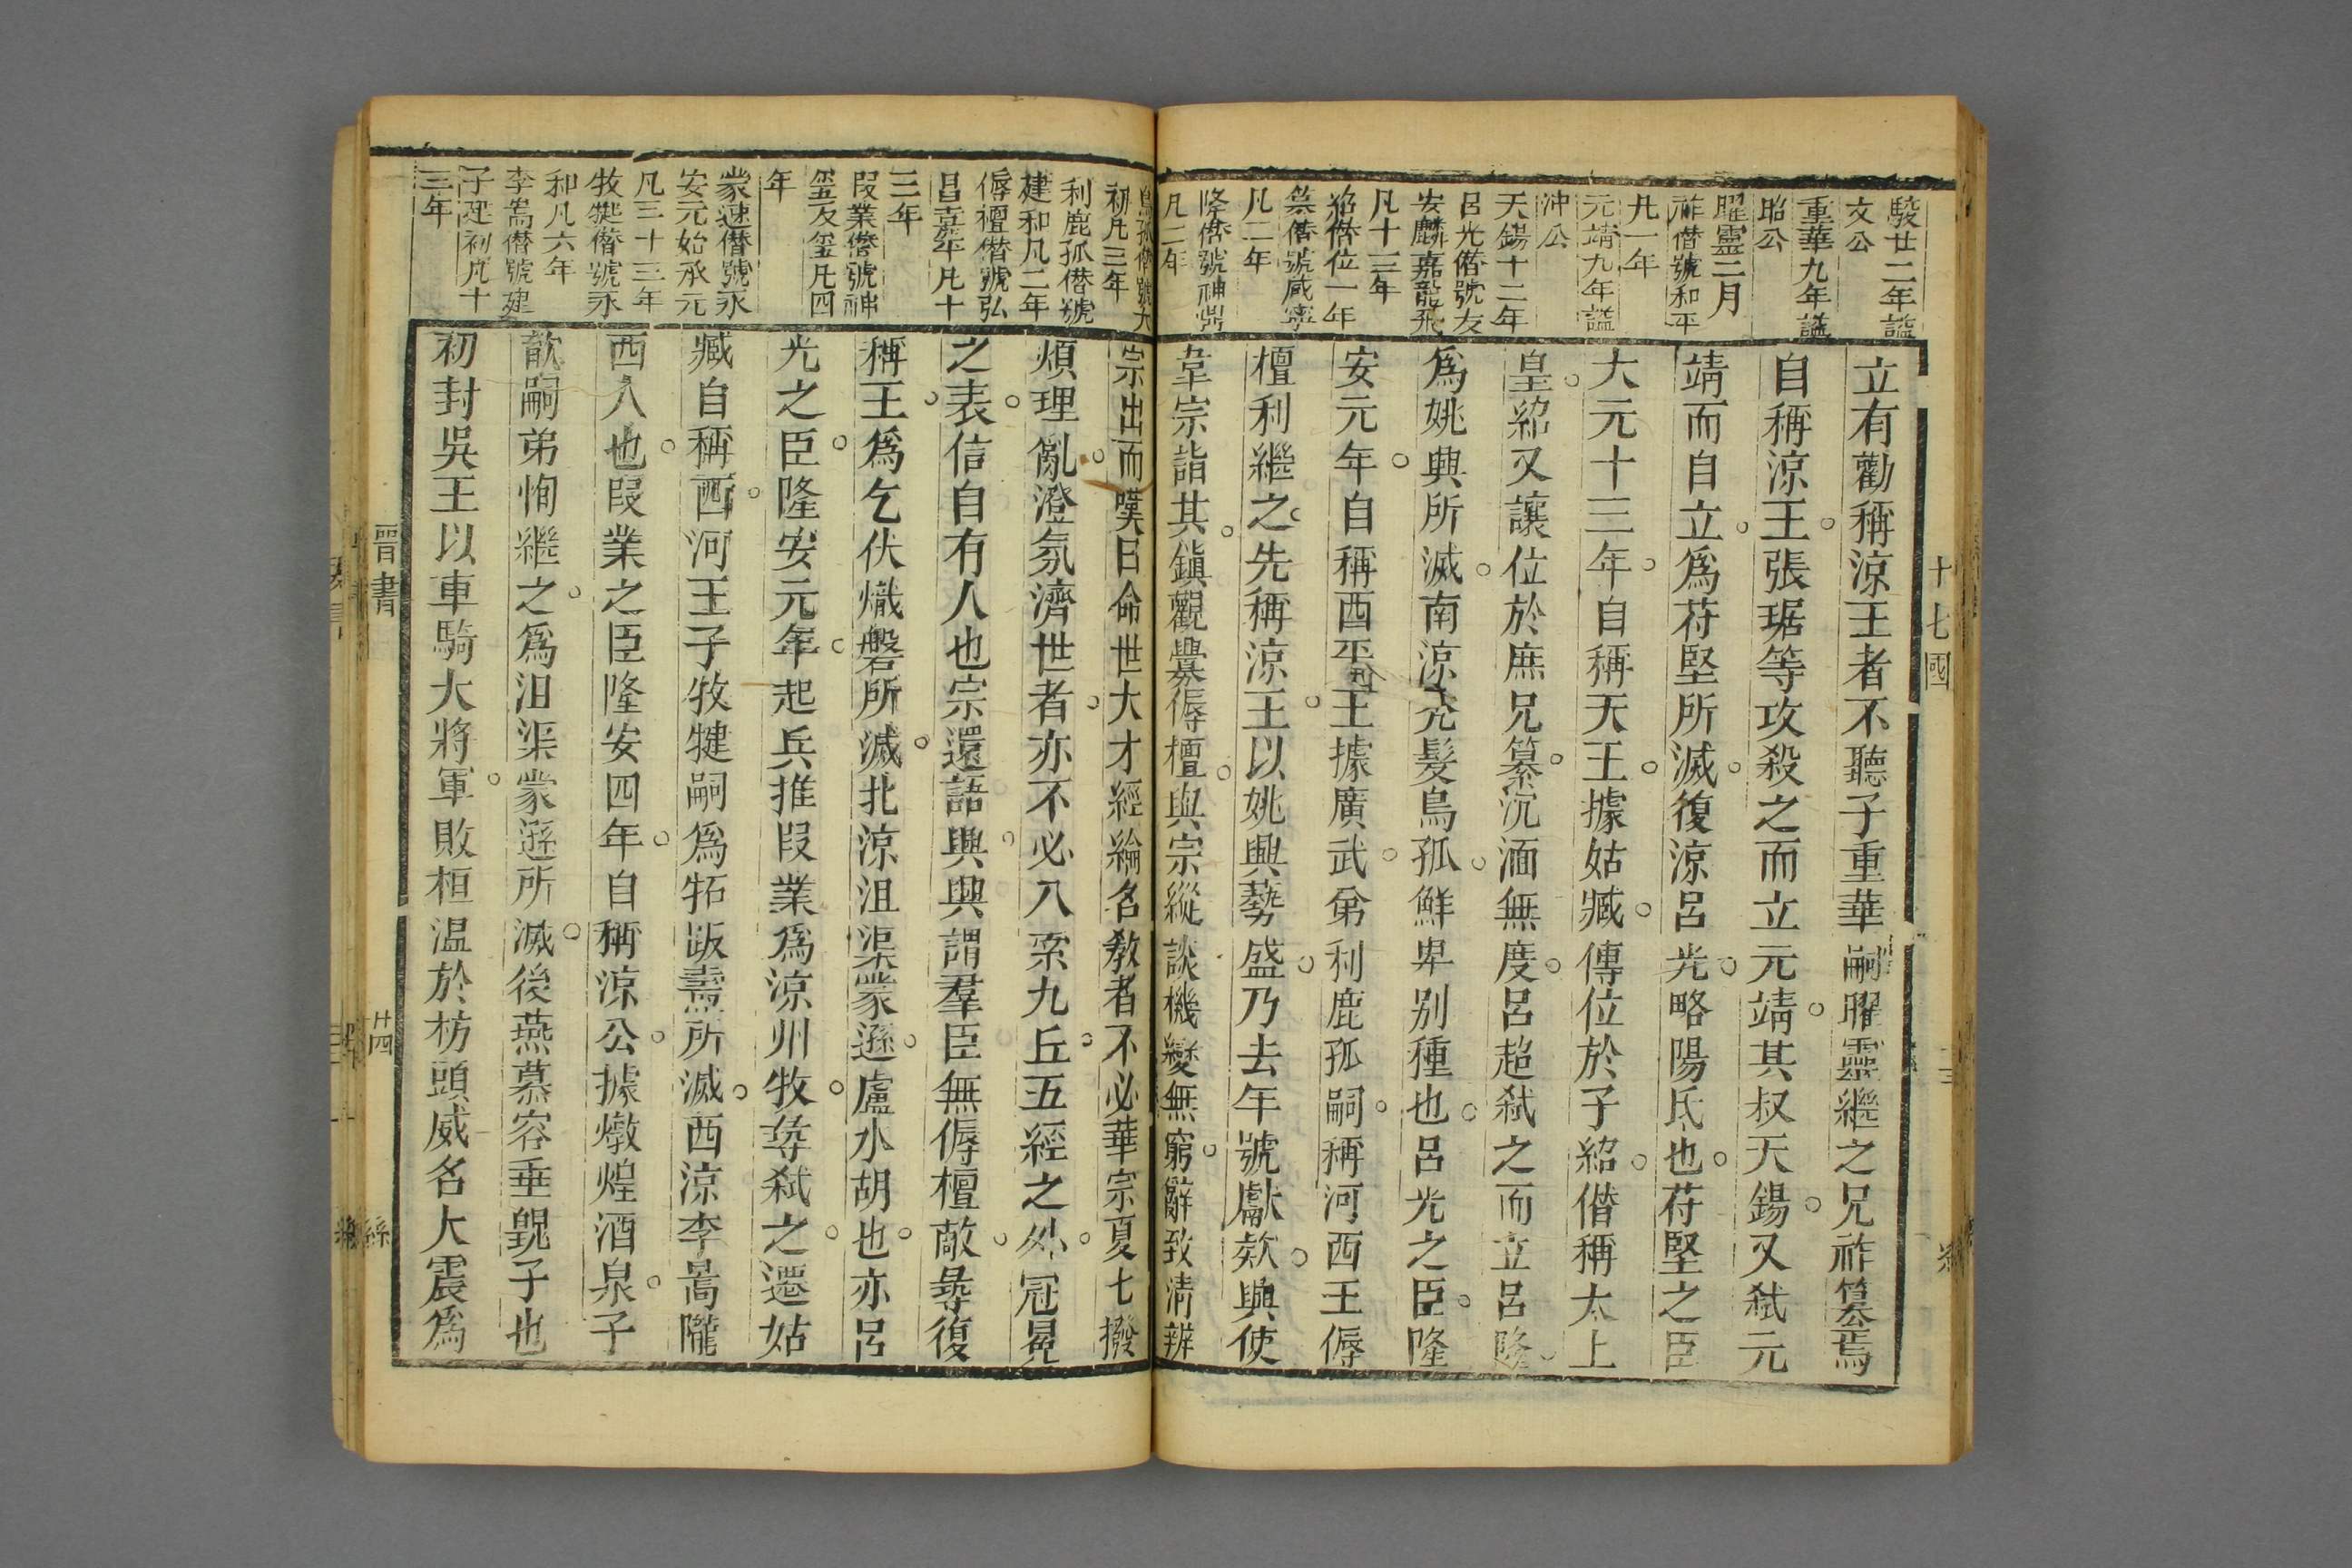 十七國
駿廿二年諡
文公
重華九年諡
昭公
曜靈二月
祚僣號和平
凡一年
元靖九年諡
冲公
天錫十二年
呂光僣號太
安麟嘉龍飛
凡十三年
紹僣位一年
纂僣號咸寧
凡二年
隆僣號神鼎
凡二年
立有勸稱涼王者不聽子重華嗣曜靈繼之兄祚篡焉
自稱涼王張琚等攻殺之而立元靖其叔天錫又弒元
靖而自立爲苻堅所滅復涼呂光略陽氐也苻堅之臣
大元十三年自稱天王據姑臧傳位於子紹僣稱太上
皇紹又讓位於庶兄纂沉湎無度呂超弒之而立呂隆
爲姚興所滅南涼禿髮烏孤鮮卑別種也呂光之臣隆
安元年自稱西平王據廣武弟利鹿孤嗣稱河西王傉
檀利繼之先稱涼王以姚興勢盛乃去年號獻欵興使
韋宗詣其鎮觀釁傉檀與宗縱談機變無窮辭致清辨
烏孤僣號太
初凡三年
利鹿孤僣號
建和凡二年
傉檀僣號弘
昌嘉平凡十
三年
段業僣號神
璽天璽凡四
年
蒙遜僣號永
安元始承元
凡三十三年
牧犍僣號永
和凡六年
李暠僣號建
子建初凡十
三年
宗出而嘆曰命世大才經綸名教者不必華宗夏士撥
煩理亂澄氛濟世者亦不必八索九丘五經之外冠冕
之表信自有人也宗還語興興謂羣臣無傉檀敵尋復
稱王爲乞伏熾磐所滅北涼沮渠蒙遜盧水胡也亦呂
光之臣隆安元年起兵推段業爲涼州牧尋弒之遷姑
臧自稱西河王子牧犍嗣爲拓跋燾所滅西涼李暠隴
西人也段業之臣隆安四年自稱涼公據燉煌酒泉子
歆嗣弟恂繼之爲沮渠蒙遜所滅後燕慕容垂皝子也
初封吳王以車騎大將軍敗桓温於枋頭威名大震爲
晉書
廿四